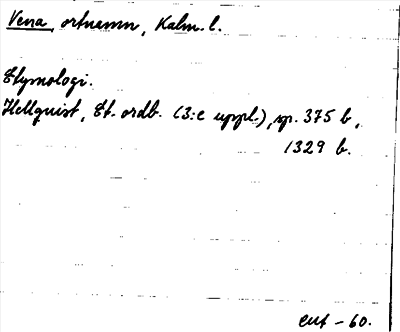 Vena, ortnamn, Kalm. l.
Etymologi.
Hellquist, Et. ordb. (3:e uppl.), sp. 375 b,
1329 b.
eut - 60.